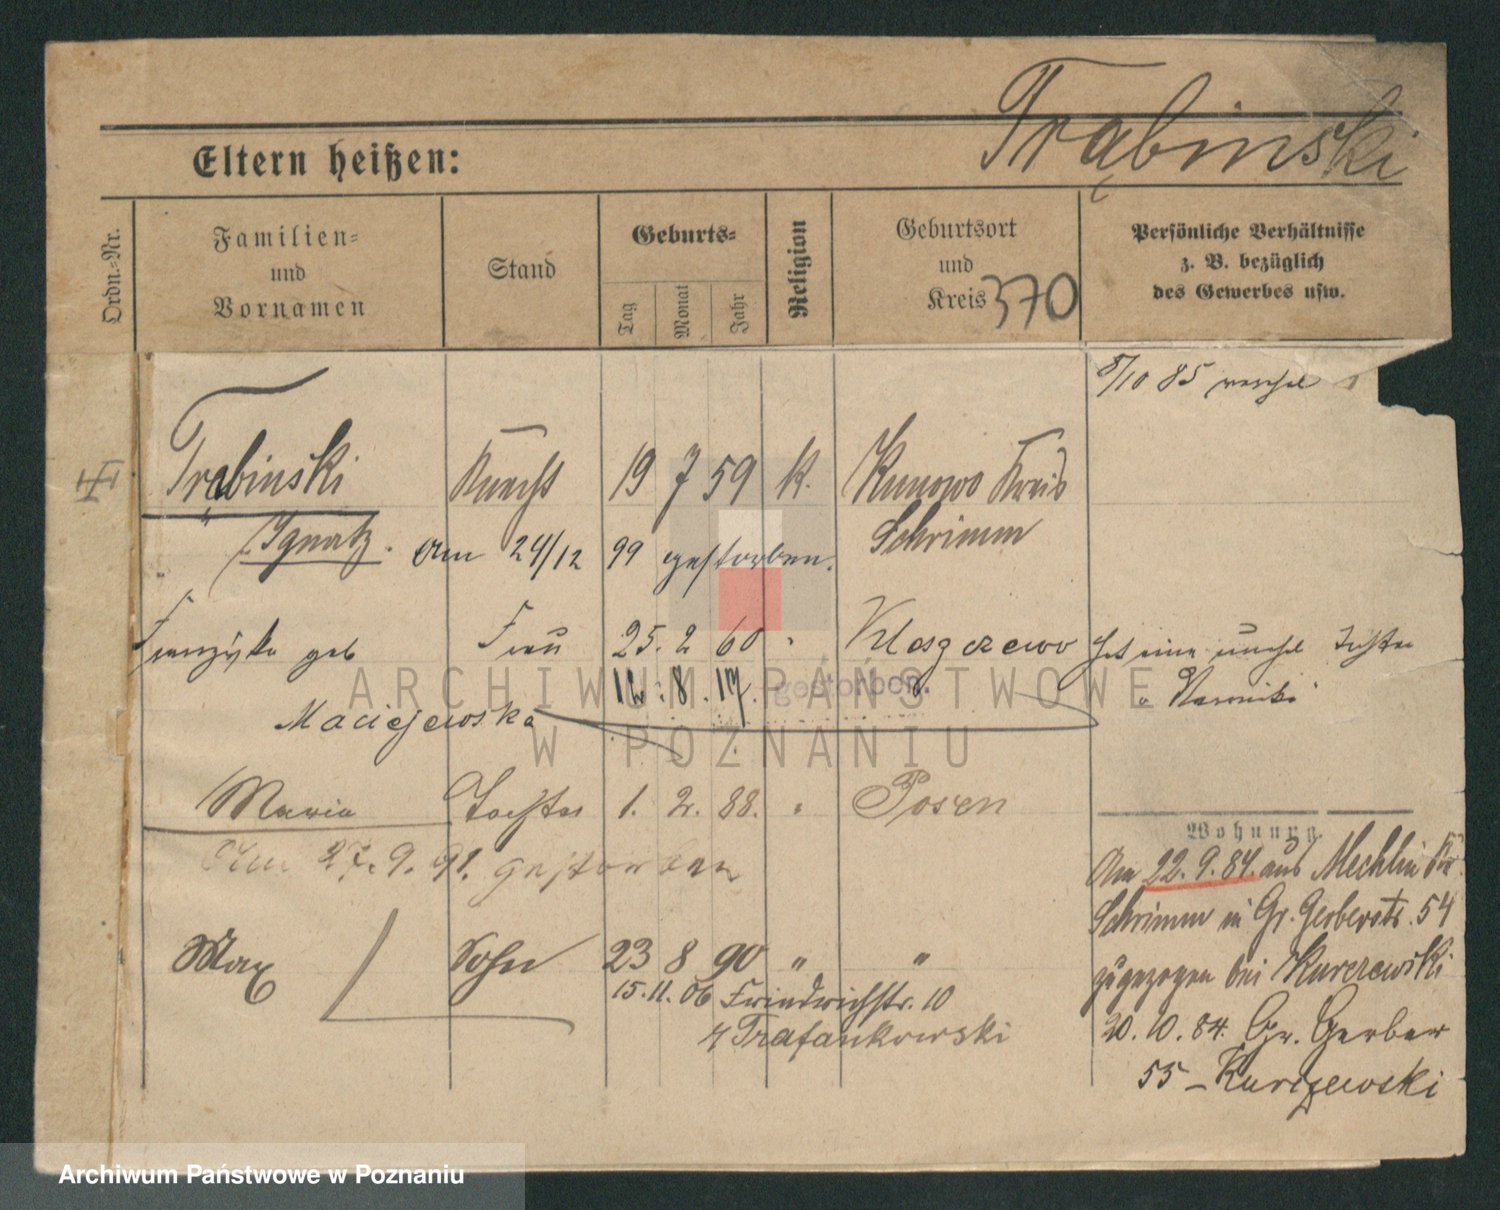 Trąbinski
Eltern heißen:
Ordn.=Nr.
Familien=
und
Vornamen
Stand
Geburts=
Tag
Monat
Jahr
Religion
Geburtsort
und
Kreis
370
Persönliche Verhältnisse
z. B. bezüglich
des Gewerbes usw.
8/10 85
Trąbinski Knecht 19 7 59 K. Kunowo Kreis
Schrimm
Ignatz. Am 24/12 99 gestorben.
geb Frau 25. 2 60 " hat eine unehel Tochter
12. 8. 17. gestorben.
Maciejewska
Maria Tochter 1. 2. 88. " Posen
Am 27. 9. 91. gestorben
Max Sohn 23 8 90 " "
15. 11. 06 Friedrichstr. 10
Wohnung.
Am 22. 9. 84. aus Mechlin Kr.
Schrimm in Gr. Gerberstr. 54
zugezogen bei Kurczewski
20. 10. 84. Gr. Gerber
55 – Kurczewski
ARCHIWUM PAŃSTWOWE
W POZNANIU
Archiwum Państwowe w Poznaniu